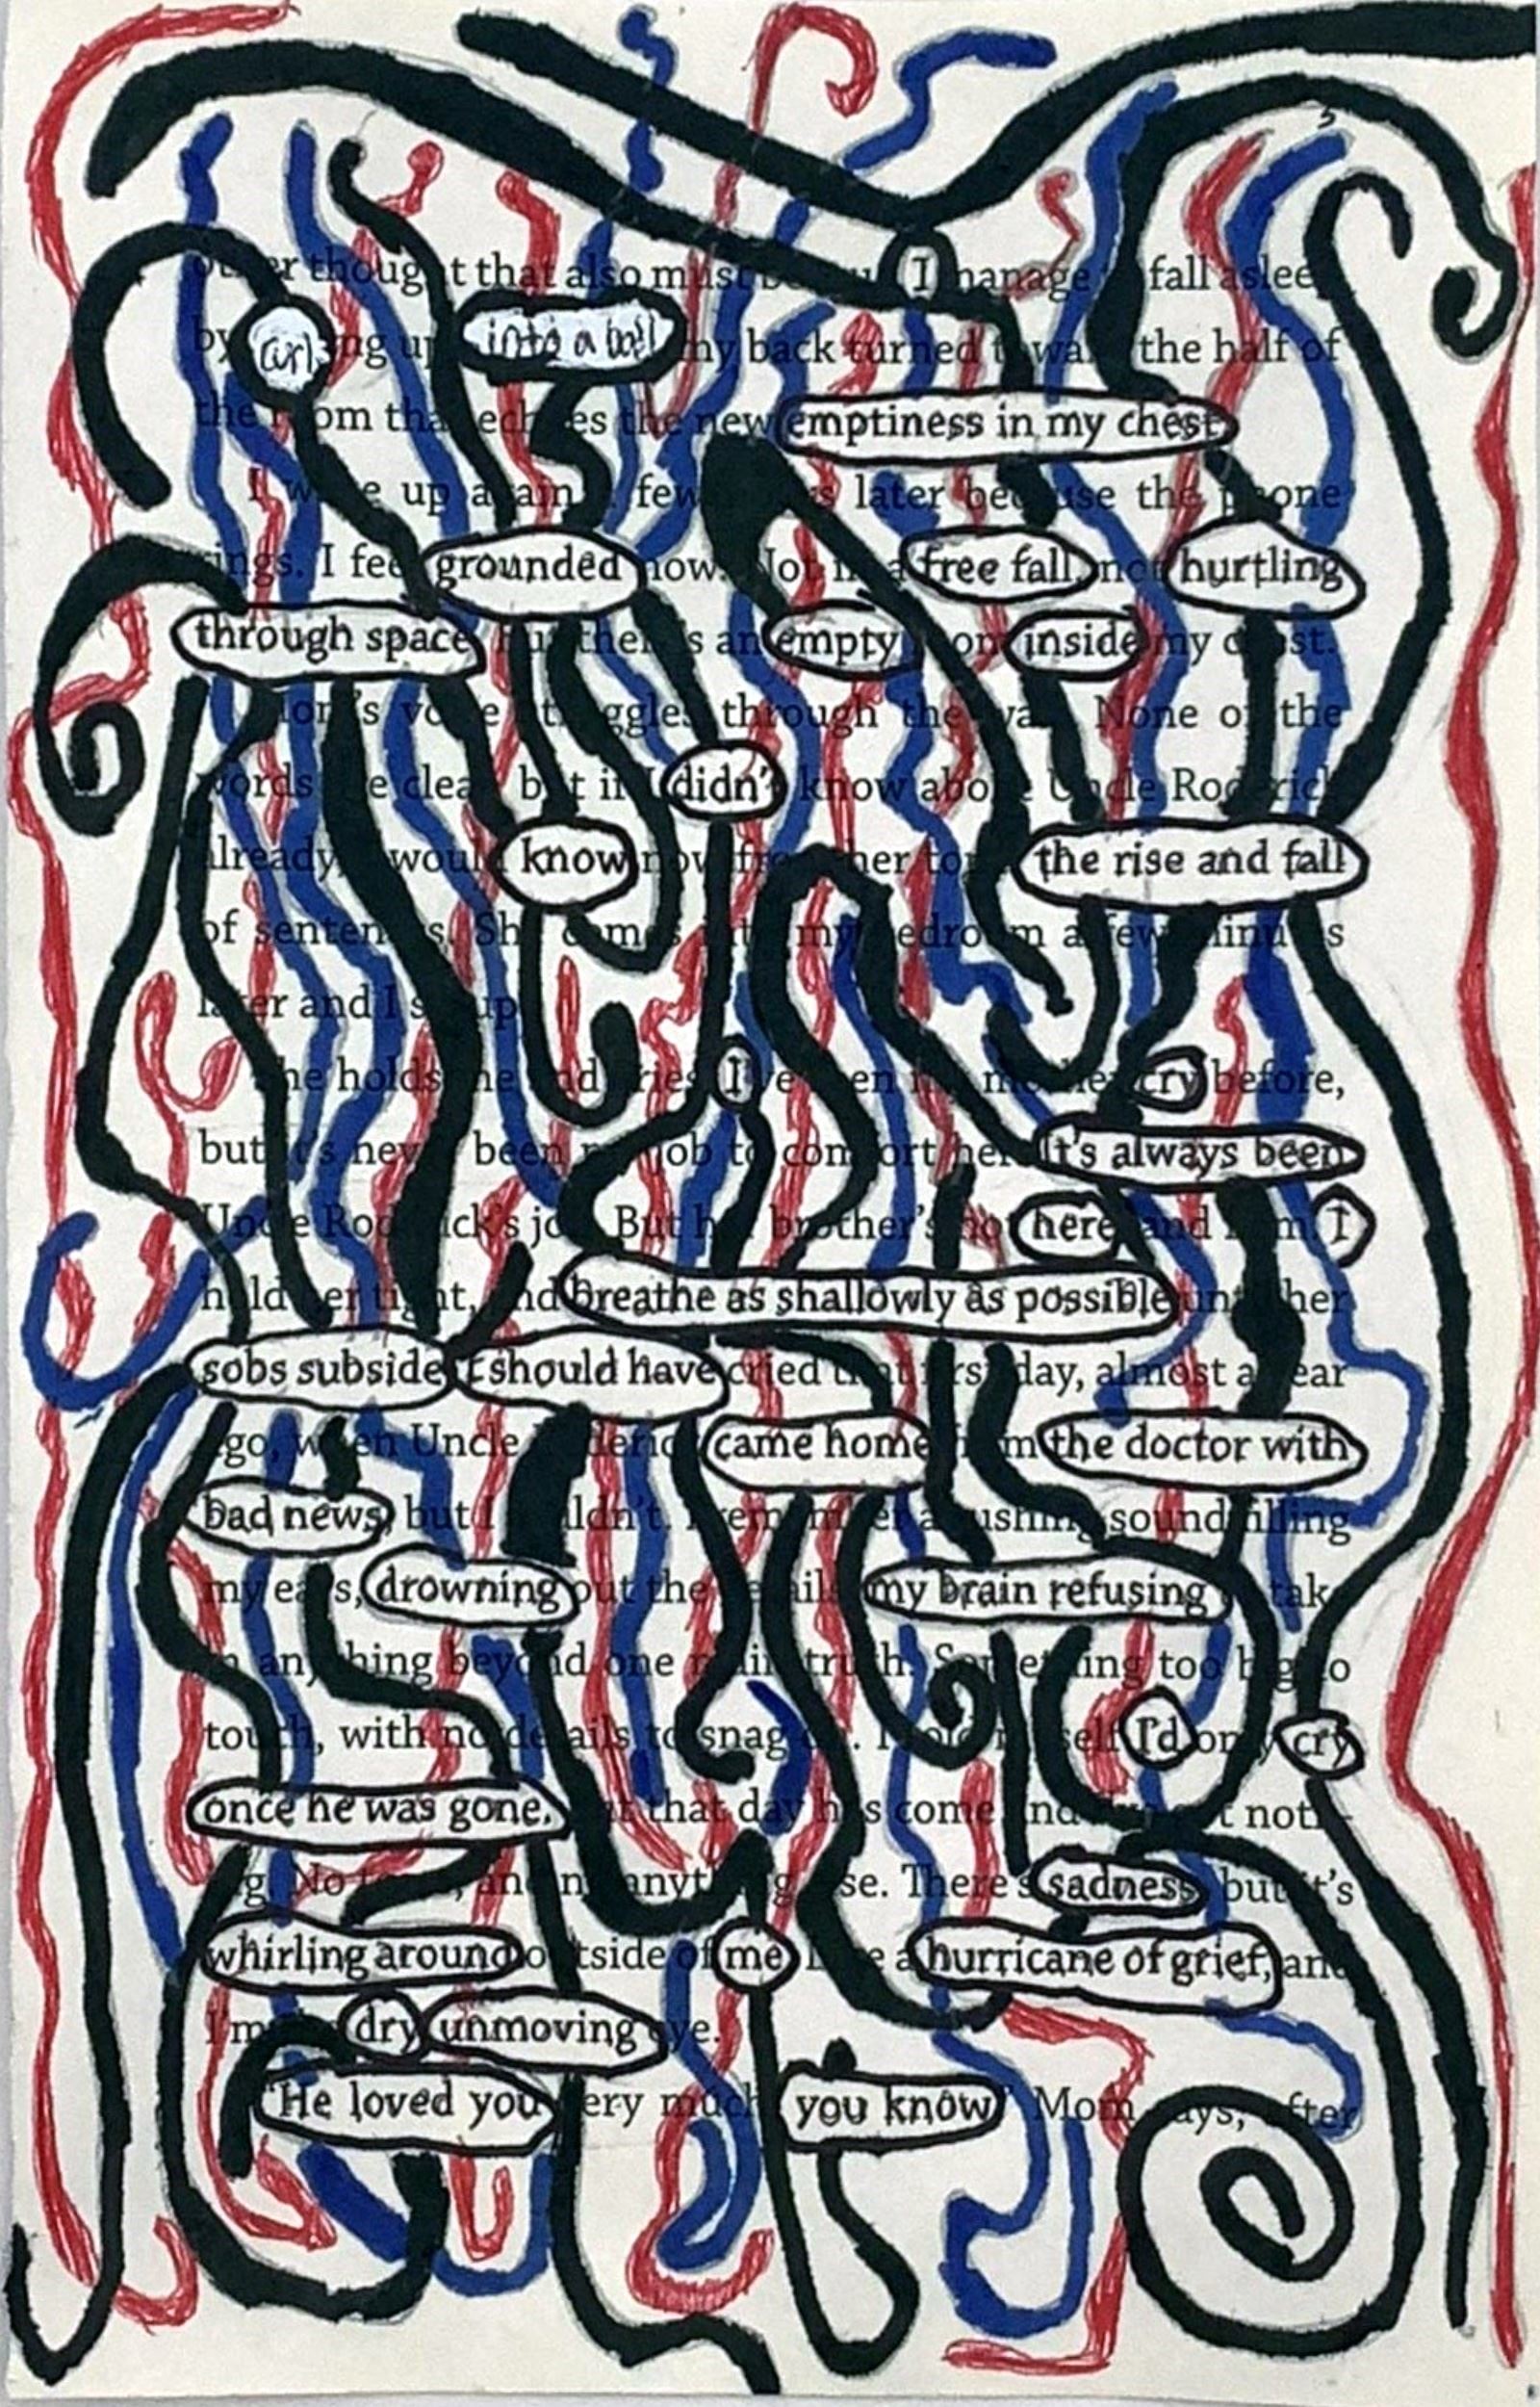 other thought that also must I manage fall asleep
by curl ing up into a ball my back turned toward the half of
the room that echoes the new emptiness in my chest
I woke up again a few later because the phone
rings. I feel grounded now. Not in a free fall, not hurtling
through space. But there's an empty inside my chest.
voice struggles through the wall. None of the
words are clear, but if I didn't know about Uncle Roderick
already, I would know now from her tone the rise and fall
of sentences. She comes into my bedroom a few minutes
later and I sit up
She holds me and cries. I've seen my mother cry before,
but it's never been my job to comfort her. It's always been
Uncle Roderick's job. But her brother's not here and I'm. I
hold her tight, and breathe as shallowly as possible until her
sobs subside. I should have cried that first day, almost a year
ago, when Uncle Roderick came home from the doctor with
bad news, but I couldn't. I remember a rushing sound filling
my ears, drowning out the details my brain refusing to take
in anything beyond one main truth. Something too big to
touch, with no details to snag on. I told myself I'd only cry
once he was gone. But that day has come and I'm not noth-
ing. No tears, and not anything else. There's sadness, but it's
whirling around outside of me like a hurricane of grief, and
I'm the dry unmoving eye.
"He loved you very much, you know." Mom says, after